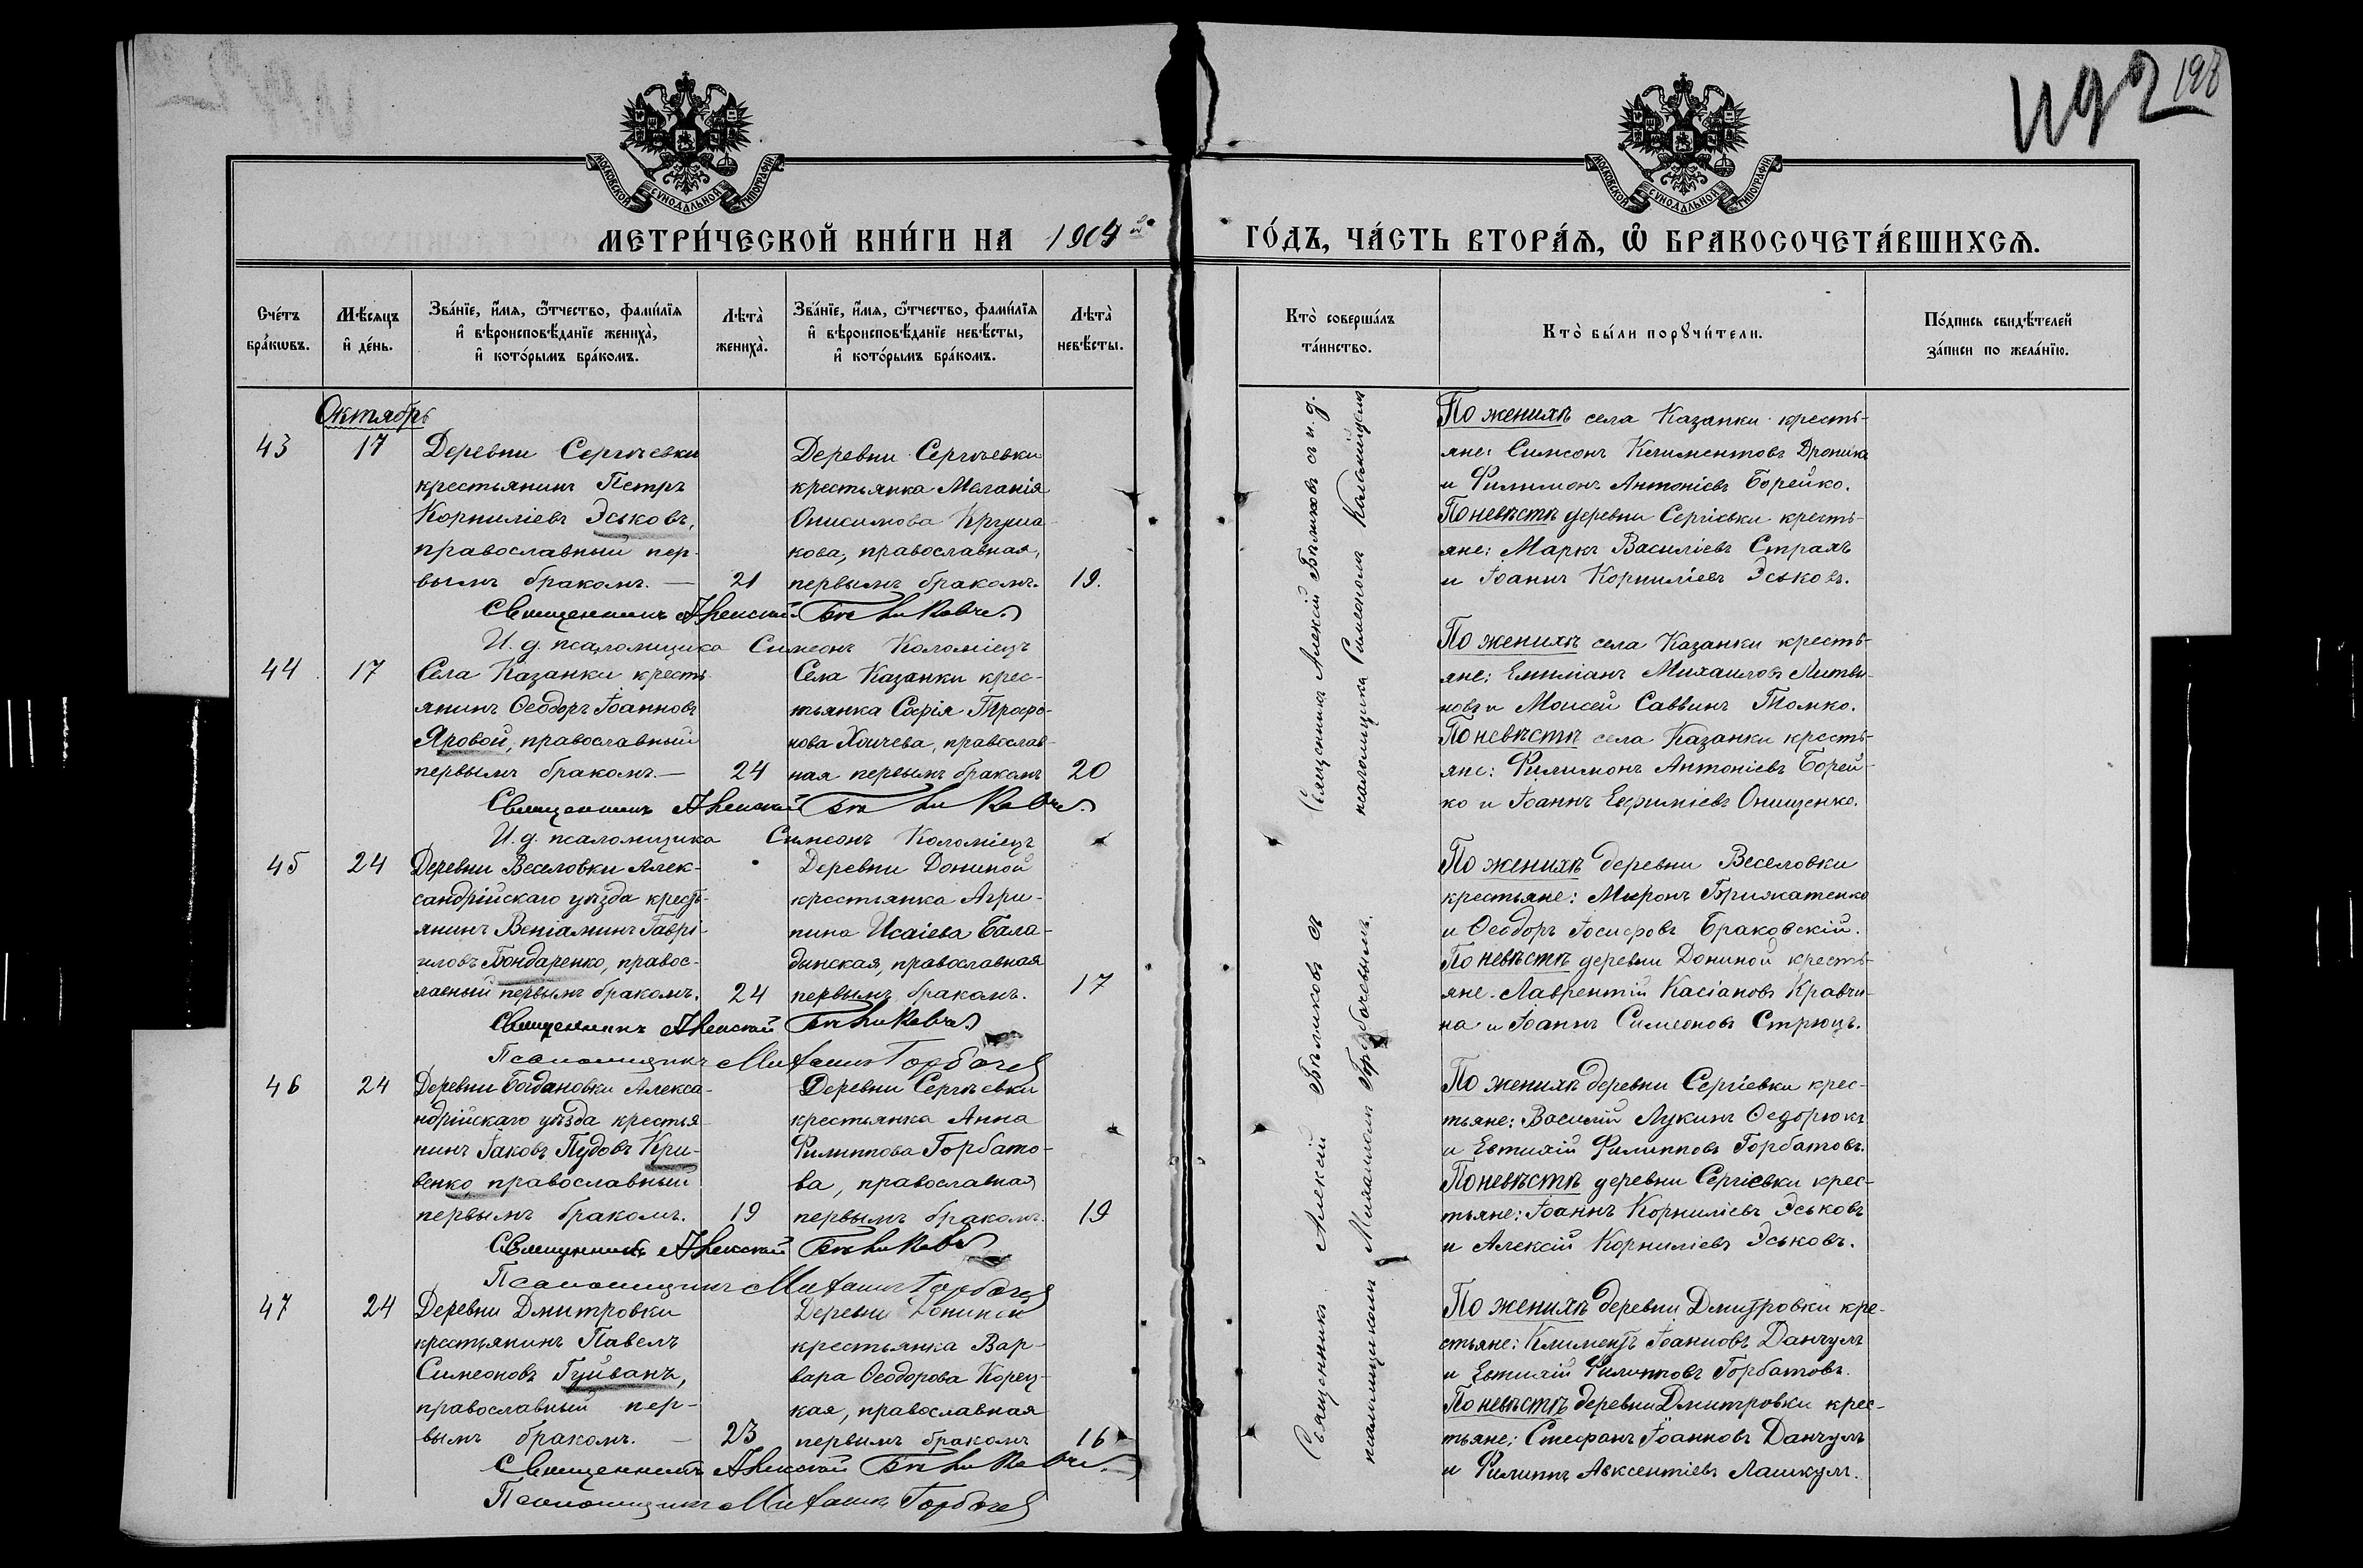 198
МОСКОВСКОЙ СУНОДАЛЬНОЙ ТИПОГРАФІИ
МОСКОВСКОЙ СУНОДАЛЬНОЙ ТИПОГРАФІИ
МЕТРИ́ЧЕСКОЙ КНИ́ГИ НА 1904 й
ГО́ДЪ, ЧА́СТЬ ВТОРА́Ѧ, Ѽ БРАКОСОЧЕТА́ВШИХСѦ.
Сче́тъ бра́кѡвъ.
Мѣ́сяцъ и҆ де́нь.
Зва́нїе, и҆́мя, ѻ҆́тчество, фами́лїя и҆ вѣроисповѣ́данїе жениха̀, и҆ кото́рымъ бра́комъ.
Лѣта̀ жениха̀.
Зва́нїе, и҆́мя, ѻ҆́тчество, фами́лїя и҆ вѣроисповѣ́данїе невѣ́сты, и҆ кото́рымъ бра́комъ.
Лѣта̀ невѣ́сты.
Кто̀ соверша́лъ та́инство.
Кто̀ бы́ли порꙋчи́тели.
По́дпись свидѣ́телей за́писи по жела́нїю.
Октябрь
43
17
Деревни Сергѣевки
крестьянинъ Петръ
Корниліевъ Эськовъ,
православный пер-
вымъ бракомъ. —
21
Деревни Сергѣевки
крестьянка Меланія
Онисимова Круша-
кова, православная,
первымъ бракомъ.
19.
Священникъ Алексій Бѣликовъ
И. д. псаломщика Симеонъ Коломіецъ
По женихѣ села Казанки кресть-
яне: Симеонъ Климентовъ Дроника
и Филимонъ Антоніевъ Борейко.
По невѣстѣ деревни Сергіевки кресть-
яне: Маркъ Василіевъ Страхъ
и Іоаннъ Корниліевъ Эськовъ.
44
17
Села Казанки кресть-
янинъ Ѳеодоръ Іоанновъ
Яровой, православный
первымъ бракомъ. —
24
Села Казанки крес-
тьянка Софія Трофи-
нова Хмичева, православ-
ная первымъ бракомъ
20
Священникъ Алексій Бѣликовъ
И. д. псаломщика Симеонъ Коломіецъ
По женихѣ села Казанки кресть-
яне: Емиліанъ Михаиловъ Литви-
новъ и Моисей Саввинъ Томко.
По невѣстѣ села Казанки кресть-
яне: Филимонъ Антоніевъ Борей-
ко и Іоаннъ Евфиміевъ Онищенко.
Священникъ Алексій Бѣликовъ съ и. д.
псаломщика Симеономъ Коломійцемъ
45
24
Деревни Веселовки Алек-
сандрійскаго уѣзда кресть-
янинъ Веніаминъ Гаврі-
иловъ Бондаренко, правос-
лавный первымъ бракомъ.
24
Деревни Дониной
крестьянка Агри-
пина Исаіева Бала-
дынская, православная
первымъ бракомъ.
17
Священникъ Алексій Бѣликовъ
Псаломщикъ Михаилъ Горбачев
По женихѣ деревни Веселовки
крестьяне: Миронъ Брижатенко
и Ѳеодоръ Іосифовъ Браковскій.
По невѣстѣ деревни Дониной кресть-
яне. Лаврентій Касіановъ Кравчи-
на и Іоаннъ Симеоновъ Стрюцъ.
46
24
Деревни Богдановки Алекса-
ндрійскаго уѣзда крестья-
нинъ Іаковъ Пудовъ Кри-
венко, православный
первымъ бракомъ.
19
Деревни Сергѣевки
крестьянка Анна
Филиппова Горбато-
ва, православная
первымъ бракомъ.
19
Священникъ Алексій Бѣликовъ
Псаломщикъ Михаилъ Горбачев
По женихѣ деревни Сергіевки крес-
тьяне: Василій Лукинъ Ѳедорюкъ
и Евтихій Филипповъ Горбатовъ.
По невѣстѣ деревни Сергіевки крес-
тьяне: Іоаннъ Корниліевъ Эськовъ
и Алексій Корниліевъ Эськовъ.
47
24
Деревни Дмитровки
крестьянинъ Павелъ
Симеоновъ Гуйванъ,
православный пер-
вымъ бракомъ. —
23
Деревни Дониной
крестьянка Вар-
вара Ѳеодорова Корец-
кая, православная
первымъ бракомъ
16
Священникъ Алексій Бѣликовъ
Псаломщикъ Михаилъ Горбачев
По женихѣ деревни Дмитровки кре-
стьяне: Климентъ Іоанновъ Данчулъ
и Евтихій Филипповъ Горбатовъ.
По невѣстѣ деревни Дмитровки крес-
тьяне: Стефанъ Іоанновъ Данчулъ
и Филиппъ Авксентіевъ Лашкулъ.
Священникъ Алексій Бѣликовъ съ
псаломщикомъ Михаиломъ Горбачевымъ.